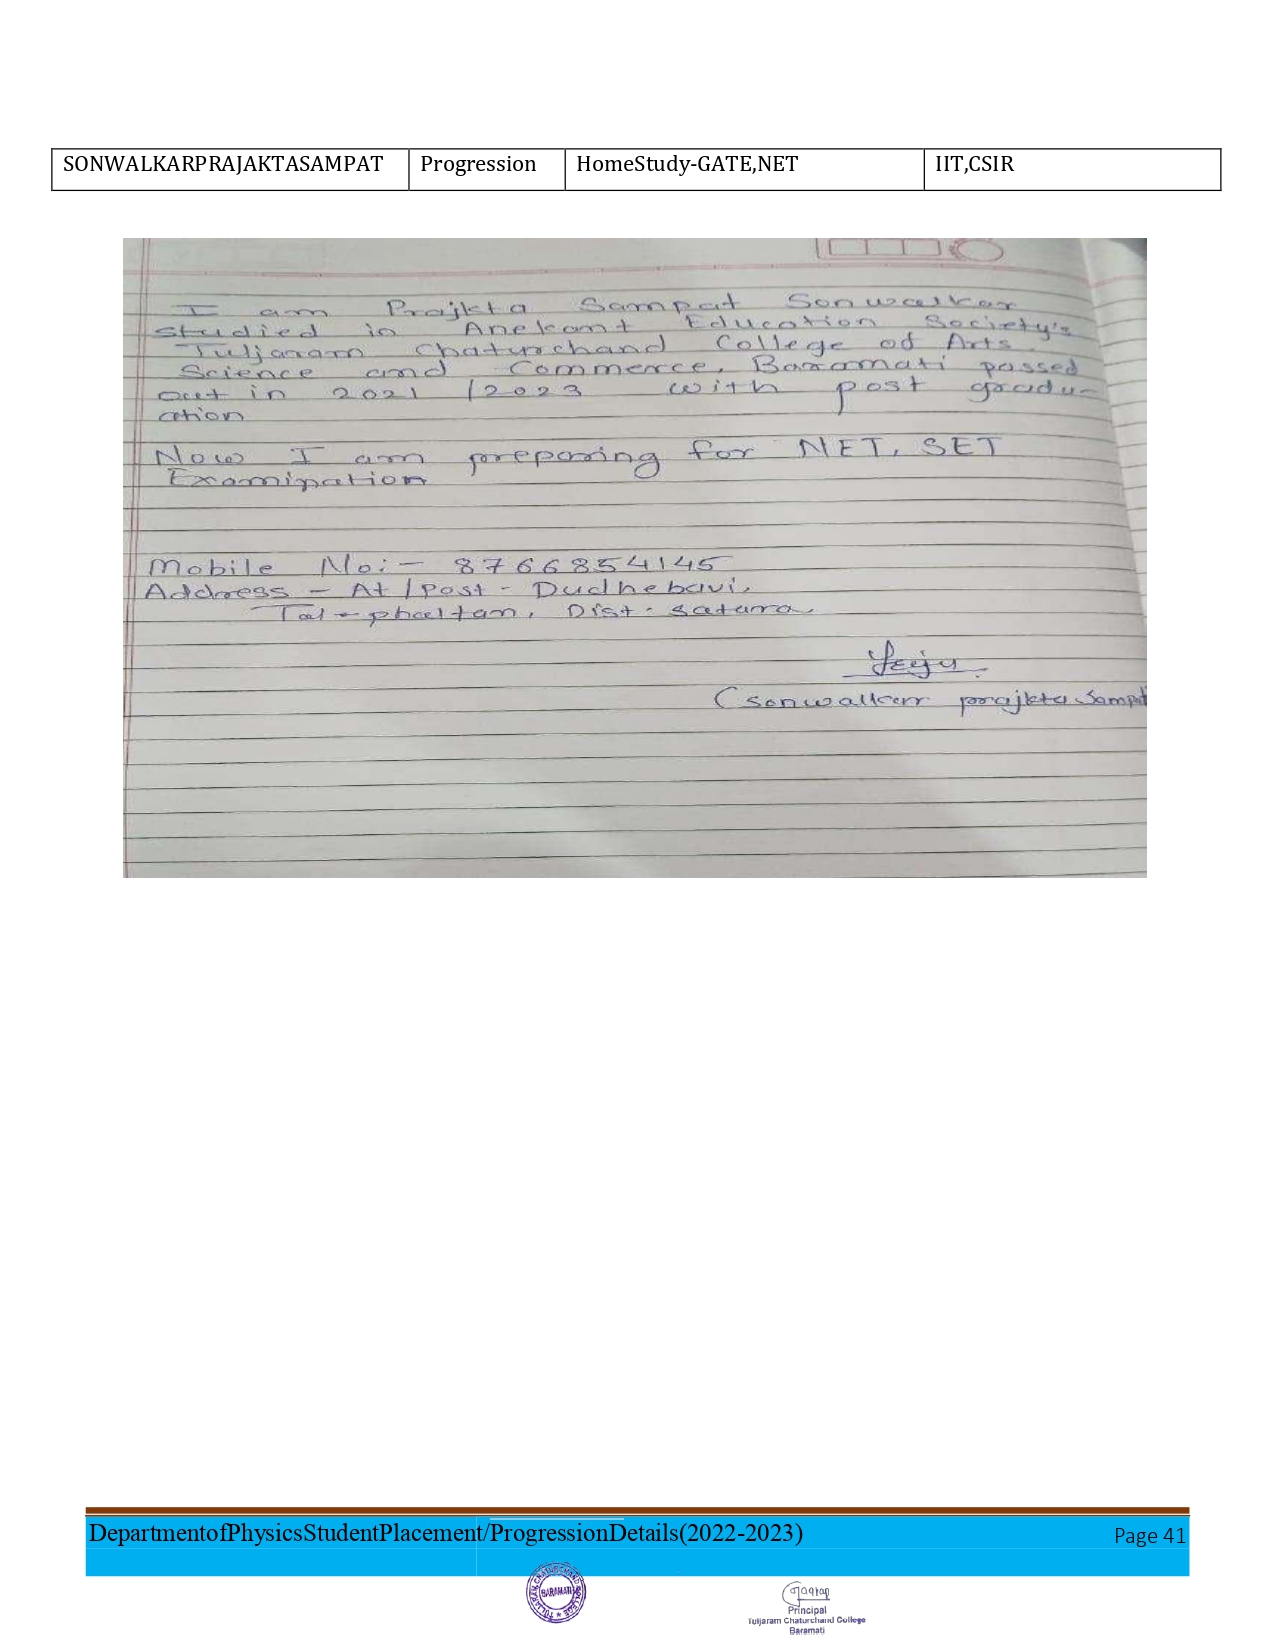 SONWALKARPRAJAKTASAMPAT Progression HomeStudy-GATE,NET IIT,CSIR
I am Prajkta Sampat Sonwalkar
studied in Anekant Education Society's
Tuljaram Chaturchand College of Arts
Science and Commerce, Baramati passed
out in 2021 /2023 with post gradu-
ation
Now I am preparing for NET, SET
Examination
Mobile No:- 8766854145
Address - At/Post - Dudhebavi,
Tal - phaltan, Dist - satara
(sonwalkar prajkta Sampat
DepartmentofPhysicsStudentPlacement/ProgressionDetails(2022-2023) Page 41
TULJARAM CHATURCHAND COLLEGE
BARAMATI
Principal
Tuljaram Chaturchand College
Baramati